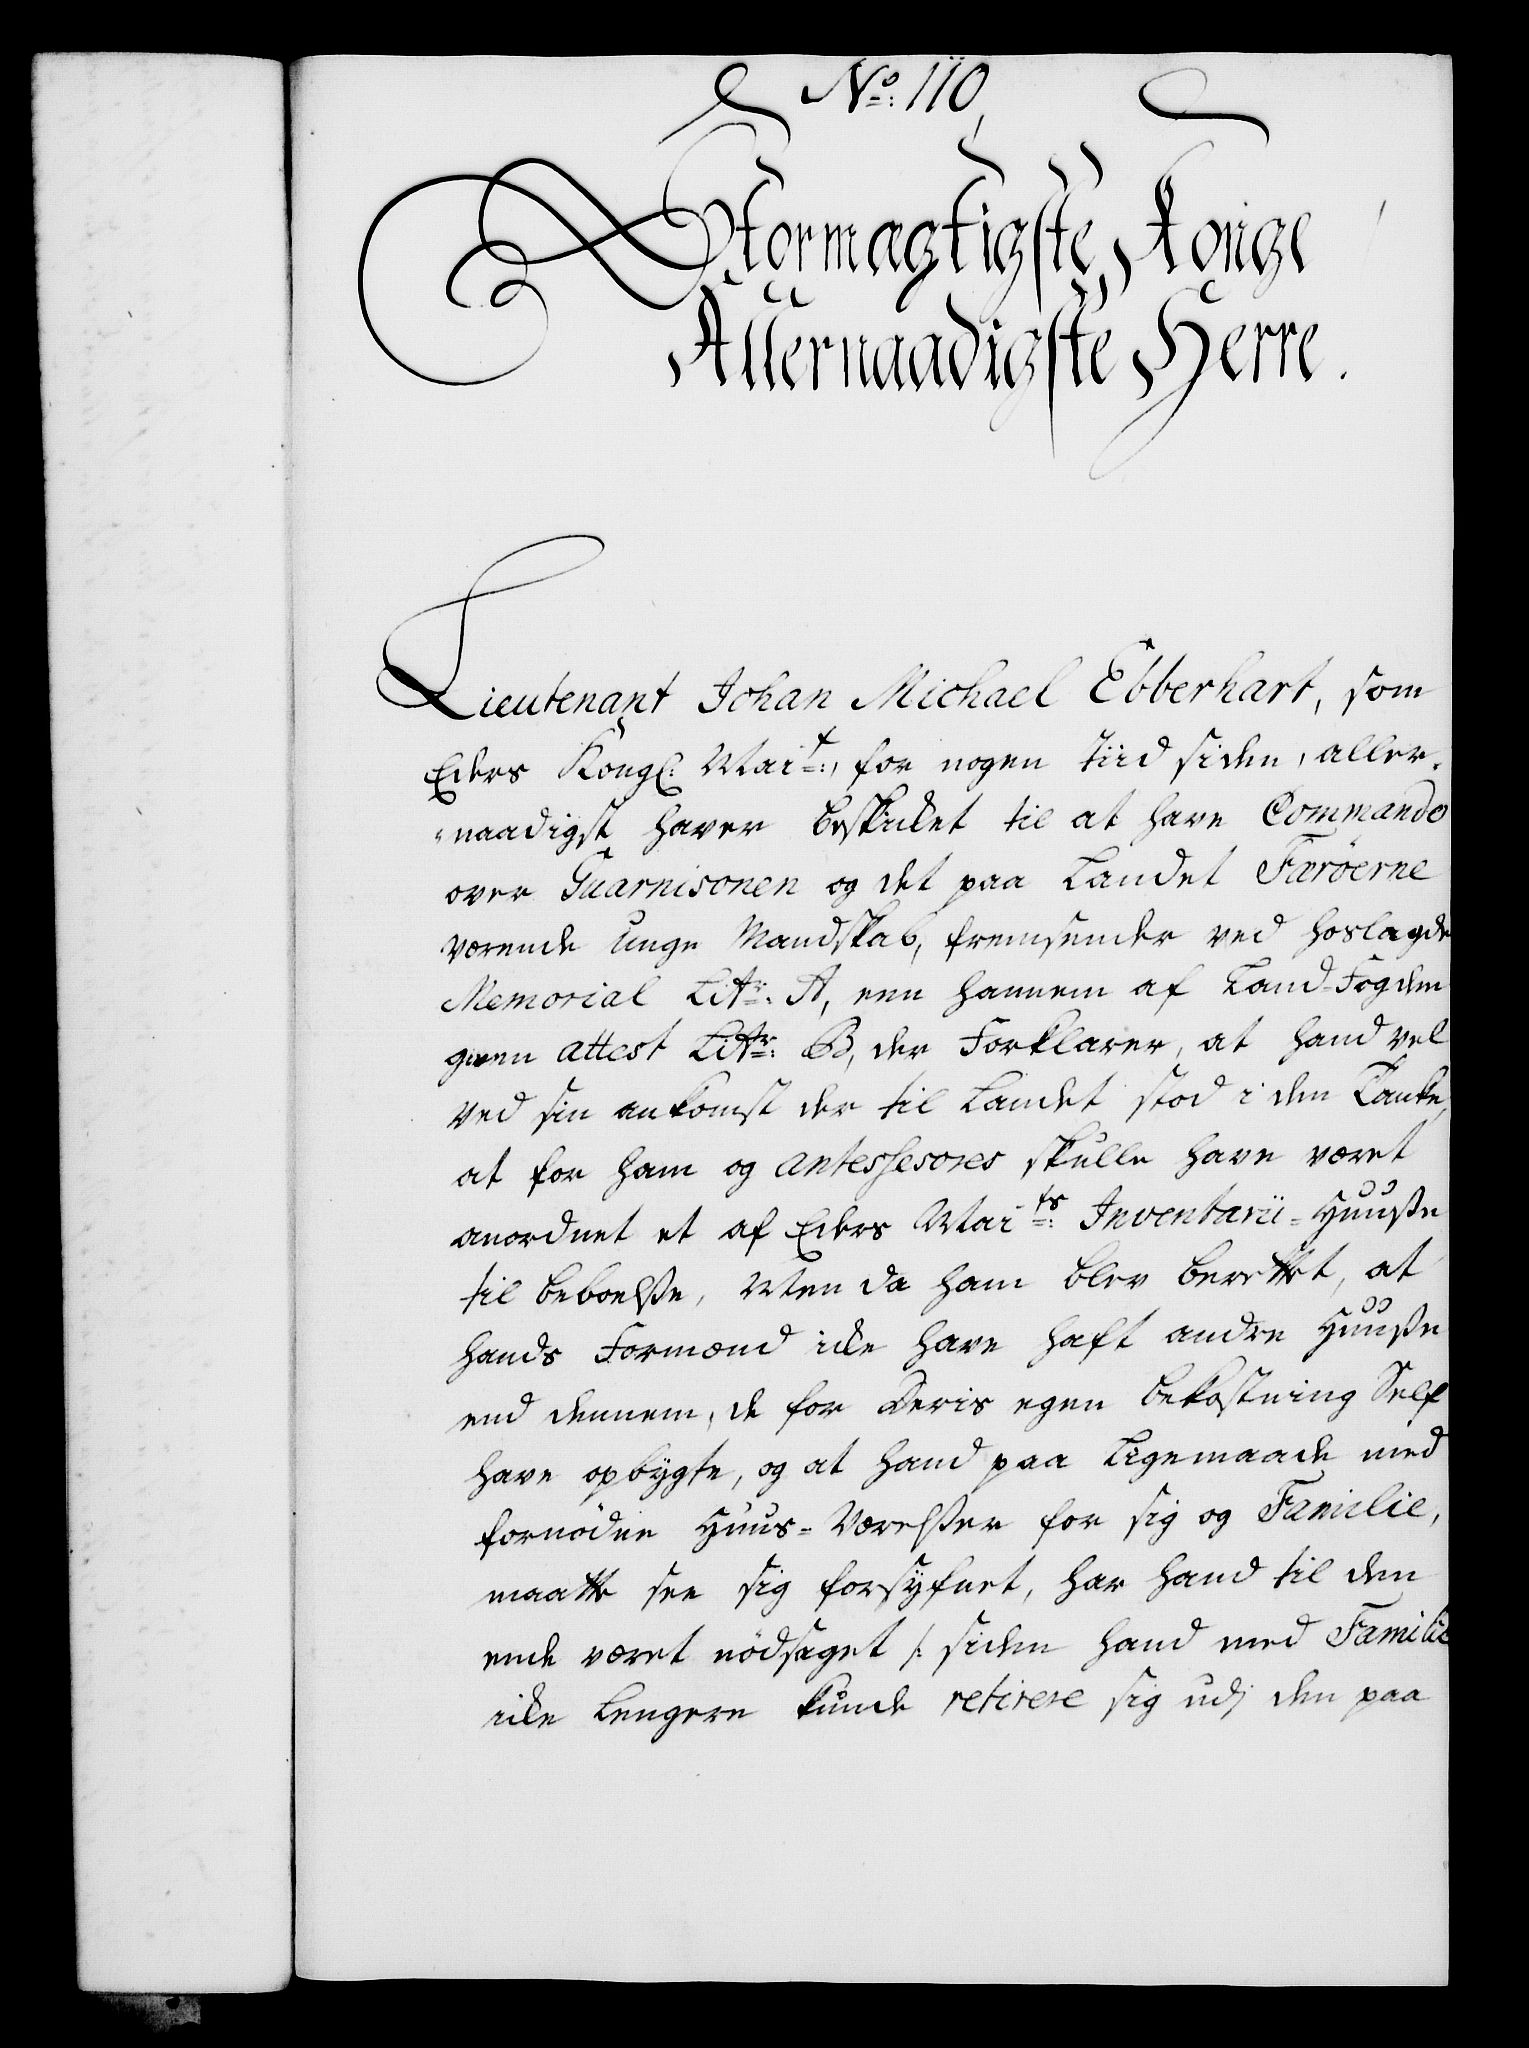 No: 110,
Stormægtigste Konge
Allernaadigste Herre.
Lieutenant Johan Michael Ebberhart, som
Eders Kongl: Mait:, for nogen tiid siden, aller-
naadigst haver beskicket til at have Commando
over Guarnisonen og det paa Landet Færöerne
værende unge Mandskab, fremsender ved hoslagde
Memorial Litr: A, een hannem af Land-Fogden
given attest Litr: B, der Forklarer, at hand vel
ved sin ankomst der til Landet stod i den Tanke,
at for ham og antessesores skulle have været
anordnet et af Eders Maits: Inventarii-Huuse
til beboelse, Men da ham blev berettet, at
hands Formænd icke have haft andre Huuse
end dennem, de for Deris egen bekostning Self
have opbygte, og at hand paa Ligemaade med
fornödne Huus-Værelser for sig og Familie,
maatte see sig forsyfnet, har hand til den
ende været nödsaget /: siden hand med Familie
icke Lengere kunde retirere sig udj den paa